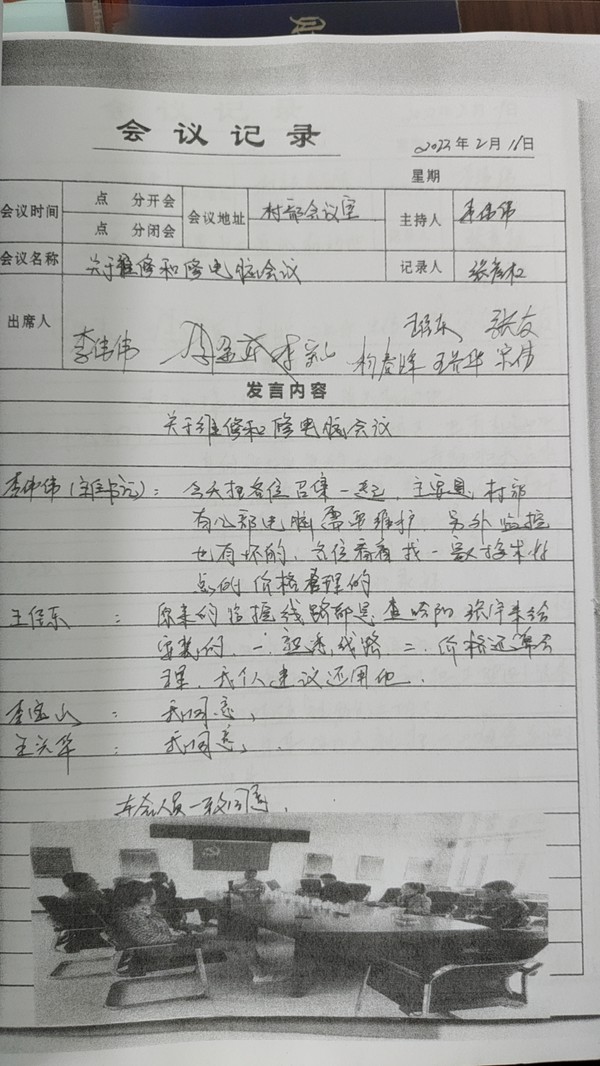 会议记录
2023年2月16日
星期
会议时间 点 分开会 会议地址 村部会议室 主持人 李伟伟
点 分闭会
会议名称 关于维修和修电脑会议 记录人
出席人 张友
李伟伟 杨春峰 王兴华 宋伟
发言内容
关于维修和修电脑会议
李伟伟(书记): 今天把各位召集一起, 主要是村部
有几部电脑需要维护, 另外监控
也有坏的, 各位看看找一家技术好
点的价格合理的
王 东 : 原来的监控线路都是 张宇来给
安装的, 一. 熟悉线路 二. 价格还算合
理, 我个人建议还用他.
李宝山 : 我同意,
王兴华 : 我同意,
与会人员一致同意.